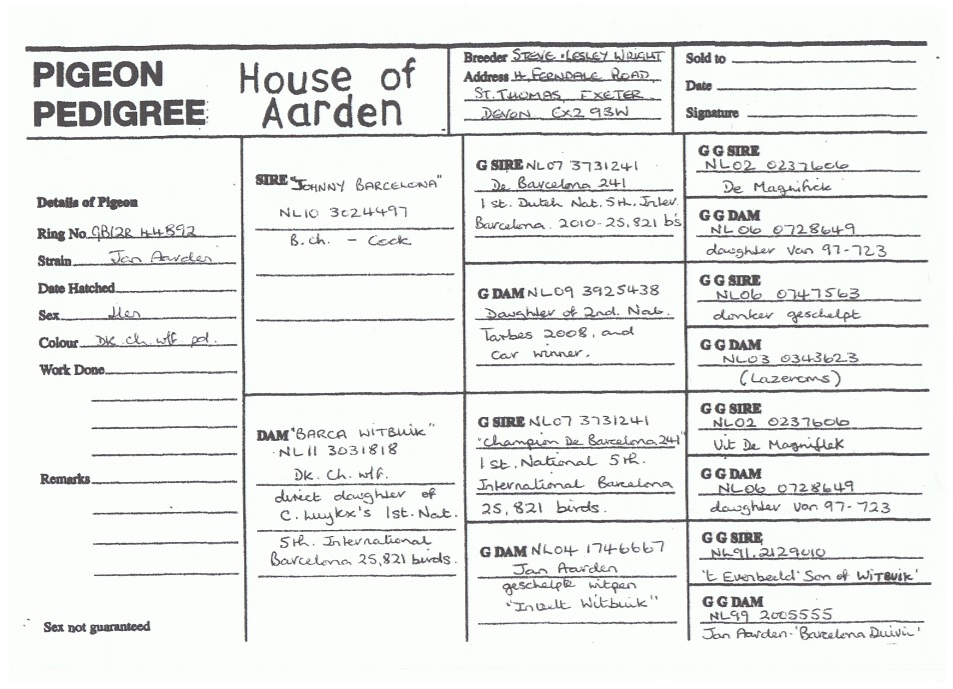 PIGEON
PEDIGREE
House of
Aarden
Breeder STEVE & LESLEY WRIGHT
Address 4, FERNDALE ROAD,
ST. THOMAS, EXETER
DEVON EX2 9BW
Sold to
Date
Signature
Details of Pigeon
Ring No GB12R 44892
Strain Jan Aarden
Date Hatched
Sex Hen
Colour Dk. Ch. wff pd.
Work Done
Remarks
Sex not guaranteed
SIRE "JOHNNY BARCELONA"
NL10 3024497
B.ch. - Cock
DAM "BARCA WITBUIK"
NL11 3031818
Dk. Ch. wff.
direct daughter of
C. Luykx's 1st. Nat.
5th. International
Barcelona 25,821 birds.
G SIRE NL07 3731241
De Barcelona 241
1st. Dutch Nat. 5th. Inter.
Barcelona. 2010-25,821 b's
G DAM NL09 3925438
Daughter of 2nd. Nat.
Tarbes 2008, and
car winner.
G SIRE NL07 3731241
"Champion De Barcelona 241"
1st. National 5th.
International Barcelona
25,821 birds.
G DAM NL04 1746667
Jan Aarden
geschelpte witpen
"Inteelt Witbuik"
G G SIRE
NL02 0237606
De Magnifiek
G G DAM
NL06 0728649
daughter van 97-723
G G SIRE
NL06 0747563
donker geschelpt
G G DAM
NL03 0343623
(Lazeroms)
G G SIRE
NL02 0237606
Uit De Magnifiek
G G DAM
NL06 0728649
daughter van 97-723
G G SIRE
NL91.2129010
't Evenbeeld' Son of WITBUIK'
G G DAM
NL99 2005555
Jan Aarden-'Barcelona Duivin'